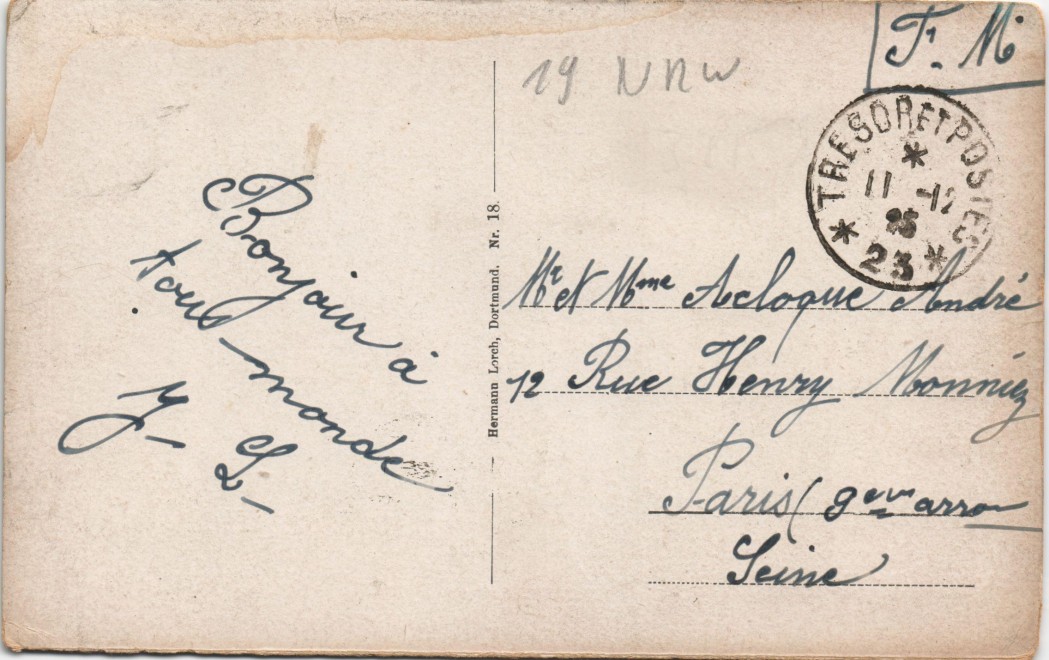 19 NRW
F. M
TRESOR ET POSTES
11 -12
25
23
Bonjour à
tous monde
J- L-
Hermann Lorch, Dortmund. Nr. 18.
Mr et Mme Acloque André
12 Rue Henry Monniez
Paris (9em arron
Seine